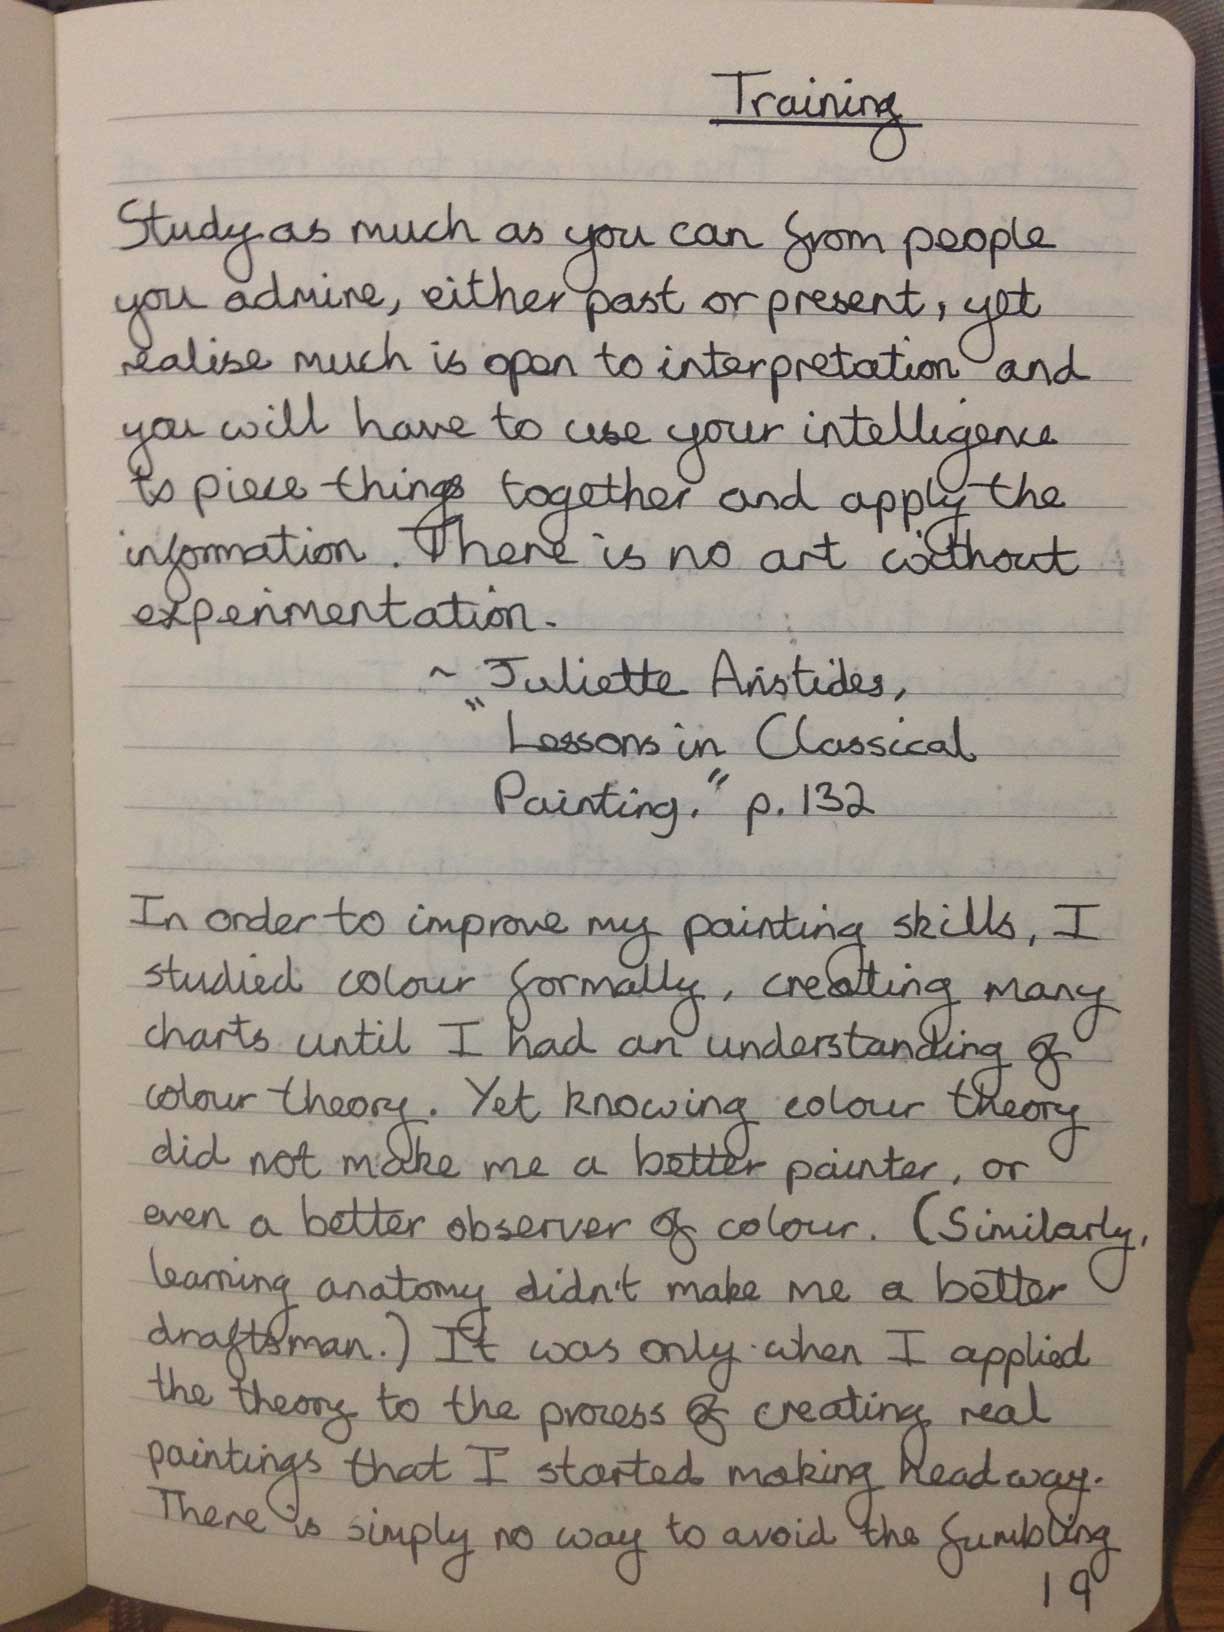 Training
Study as much as you can from people
you admire, either past or present, yet
realise much is open to interpretation and
you will have to use your intelligence
to piece things together and apply the
information. There is no art without
experimentation.
~ Juliette Aristides,
"Lessons in Classical
Painting." p. 132
In order to improve my painting skills, I
studied colour formally, creating many
charts until I had an understanding of
colour theory. Yet knowing colour theory
did not make me a better painter, or
even a better observer of colour. (Similarly,
learning anatomy didn't make me a better
draftsman.) It was only when I applied
the theory to the process of creating real
paintings that I started making headway.
There is simply no way to avoid the fumbling
19